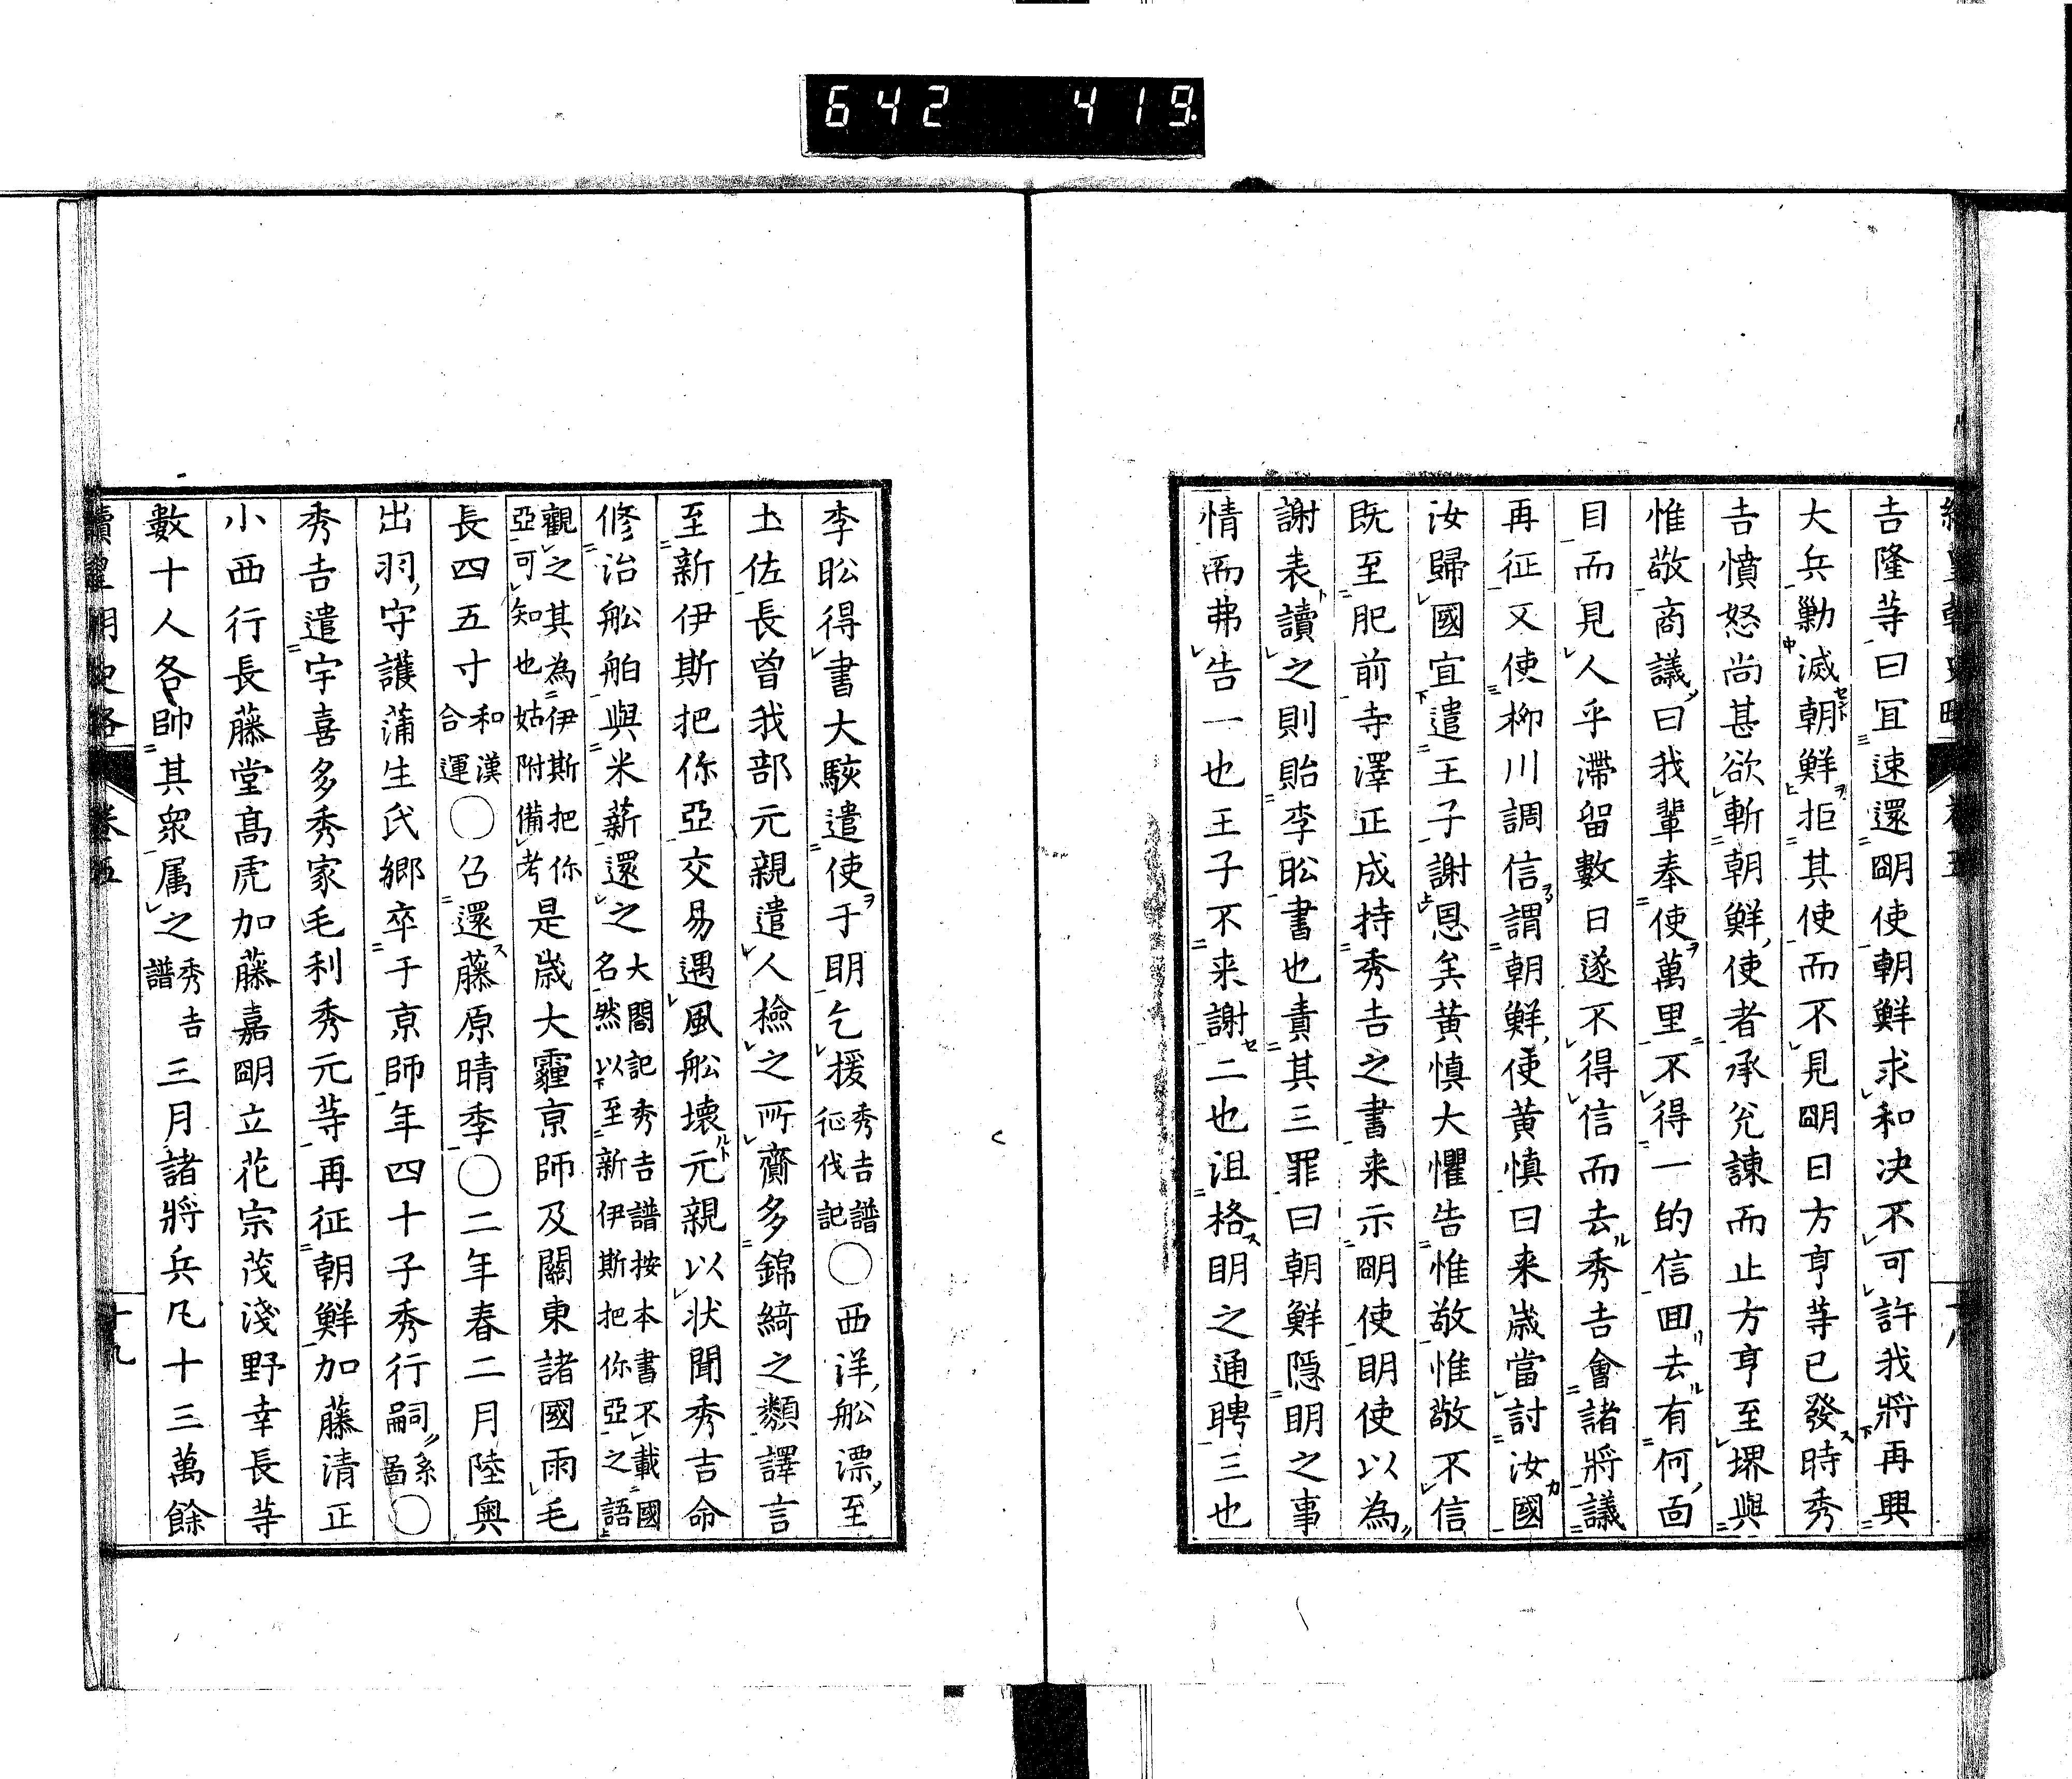 642 419
吉隆等曰宜速還朙使朝鮮求和决不可許我將再興
大兵勦滅朝鮮拒其使而不見朙日方亨等已發時秀
吉憤怒尚甚欲斬朝鮮使者承兊諫而止方亨至堺與
惟敬商議曰我輩奉使萬里不得一的信囬去有何面
目而見人乎滯留數日遂不得信而去秀吉會諸將議
再征又使柳川調信謂朝鮮使黄慎曰来歳當討汝國
汝歸國宜遣王子謝恩矣黄慎大懼告惟敬惟敬不信
既至肥前寺澤正成持秀吉之書来示朙使明使以為
謝表讀之則貽李昖書也責其三罪曰朝鮮隱明之事
情而弗告一也王子不来謝二也沮格明之通聘三也
李昖得書大駭遣使于明乞援秀吉譜征伐記〇西洋舩漂至
土佐長曾我部元親遣人檢之所齎多錦綺之類譯言
至新伊斯把你亞交易遇風舩壞元親以状聞秀吉命
修治舩舶與米薪還之大閤記秀吉譜按本書不載國名然以下至新伊斯把你亞之語
觀之其為伊斯把你亞可知也姑附備考是歳大霾京師及關東諸國雨毛
長四五寸和漢合運〇召還藤原晴季〇二年春二月陸奥
出羽守護蒲生氏郷卒于京師年四十子秀行嗣系圖〇
秀吉遣宇喜多秀家毛利秀元等再征朝鮮加藤清正
小西行長藤堂髙虎加藤嘉朙立花宗茂淺野幸長等
數十人各帥其衆属之秀吉譜三月諸將兵凢十三萬餘
續皇朝史略 卷五 十九